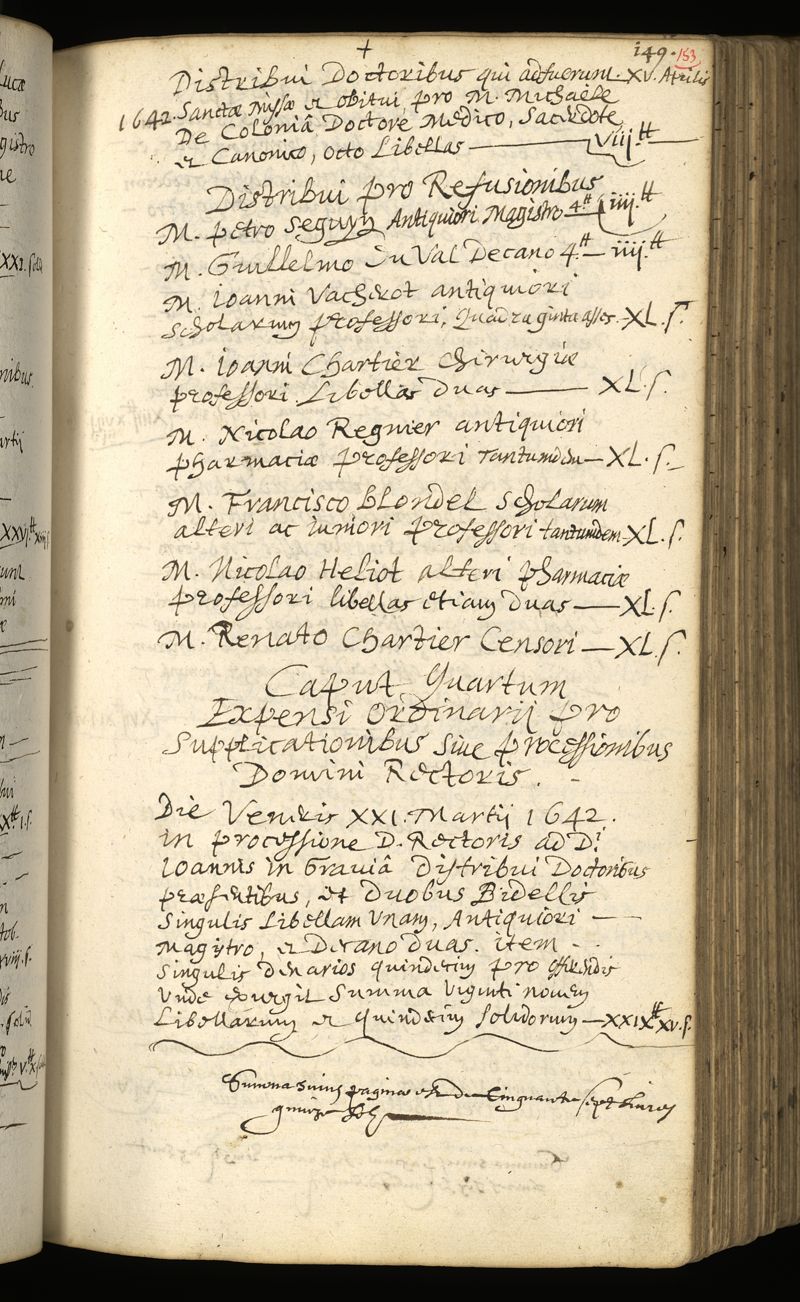 149.
153
+
Distribui Doctoribus qui adfuerunt XV. Aprilis
1642. Sanctæ Missæ et obitui, pro M. Michaële
De Coloniâ Doctore Medico, Sacerdote
et Canonico, octo Libellas — viii.tt
Distribui pro Refusionibus
M. Petro Seguyn Antiquiori Magistro 4.tt iiii.tt
M. Guillelmo du Val Decano 4.tt — iiii.tt
M. Ioanni Vacherot antiquiori
Scholarum professori, Quadraginta asses. XL. s.
M. Ioanni Chartier chirurgiæ
professori Libellas duas — XL. s.
M. Nicolao Regnier antiquiori
pharmaciæ professori — XL. s.
M. Francisco Blondel Scholarum
alteri ac iuniori professori tantumdem — XL. s.
M. Nicolao Heliot alteri pharmaciæ
professori libellas etiam duas — XL. s.
M. Renato Chartier Censori — XL. s.
Caput Quartum
Expensi Ordinarij pro
Supplicationibus Sive processionibus
Domini Rectoris.
Die Veneris XXI. Martij 1642.
in processione D. Rectoris ad D.i
Ioannis in Graviâ distribui Doctoribus
præsentibus, et duobus Bidellis
Singulis Libellam Unam, Antiquiori —
Magistro, et Decano duas. item
Singulis denarios quindecim pro offerendis
Unde exurgit Summa viginti novem
Libellarum et quindecim solidorum — XXIX tt XV. s.
Summa huius paginæ est de Cinquante sept livres
quinze sols